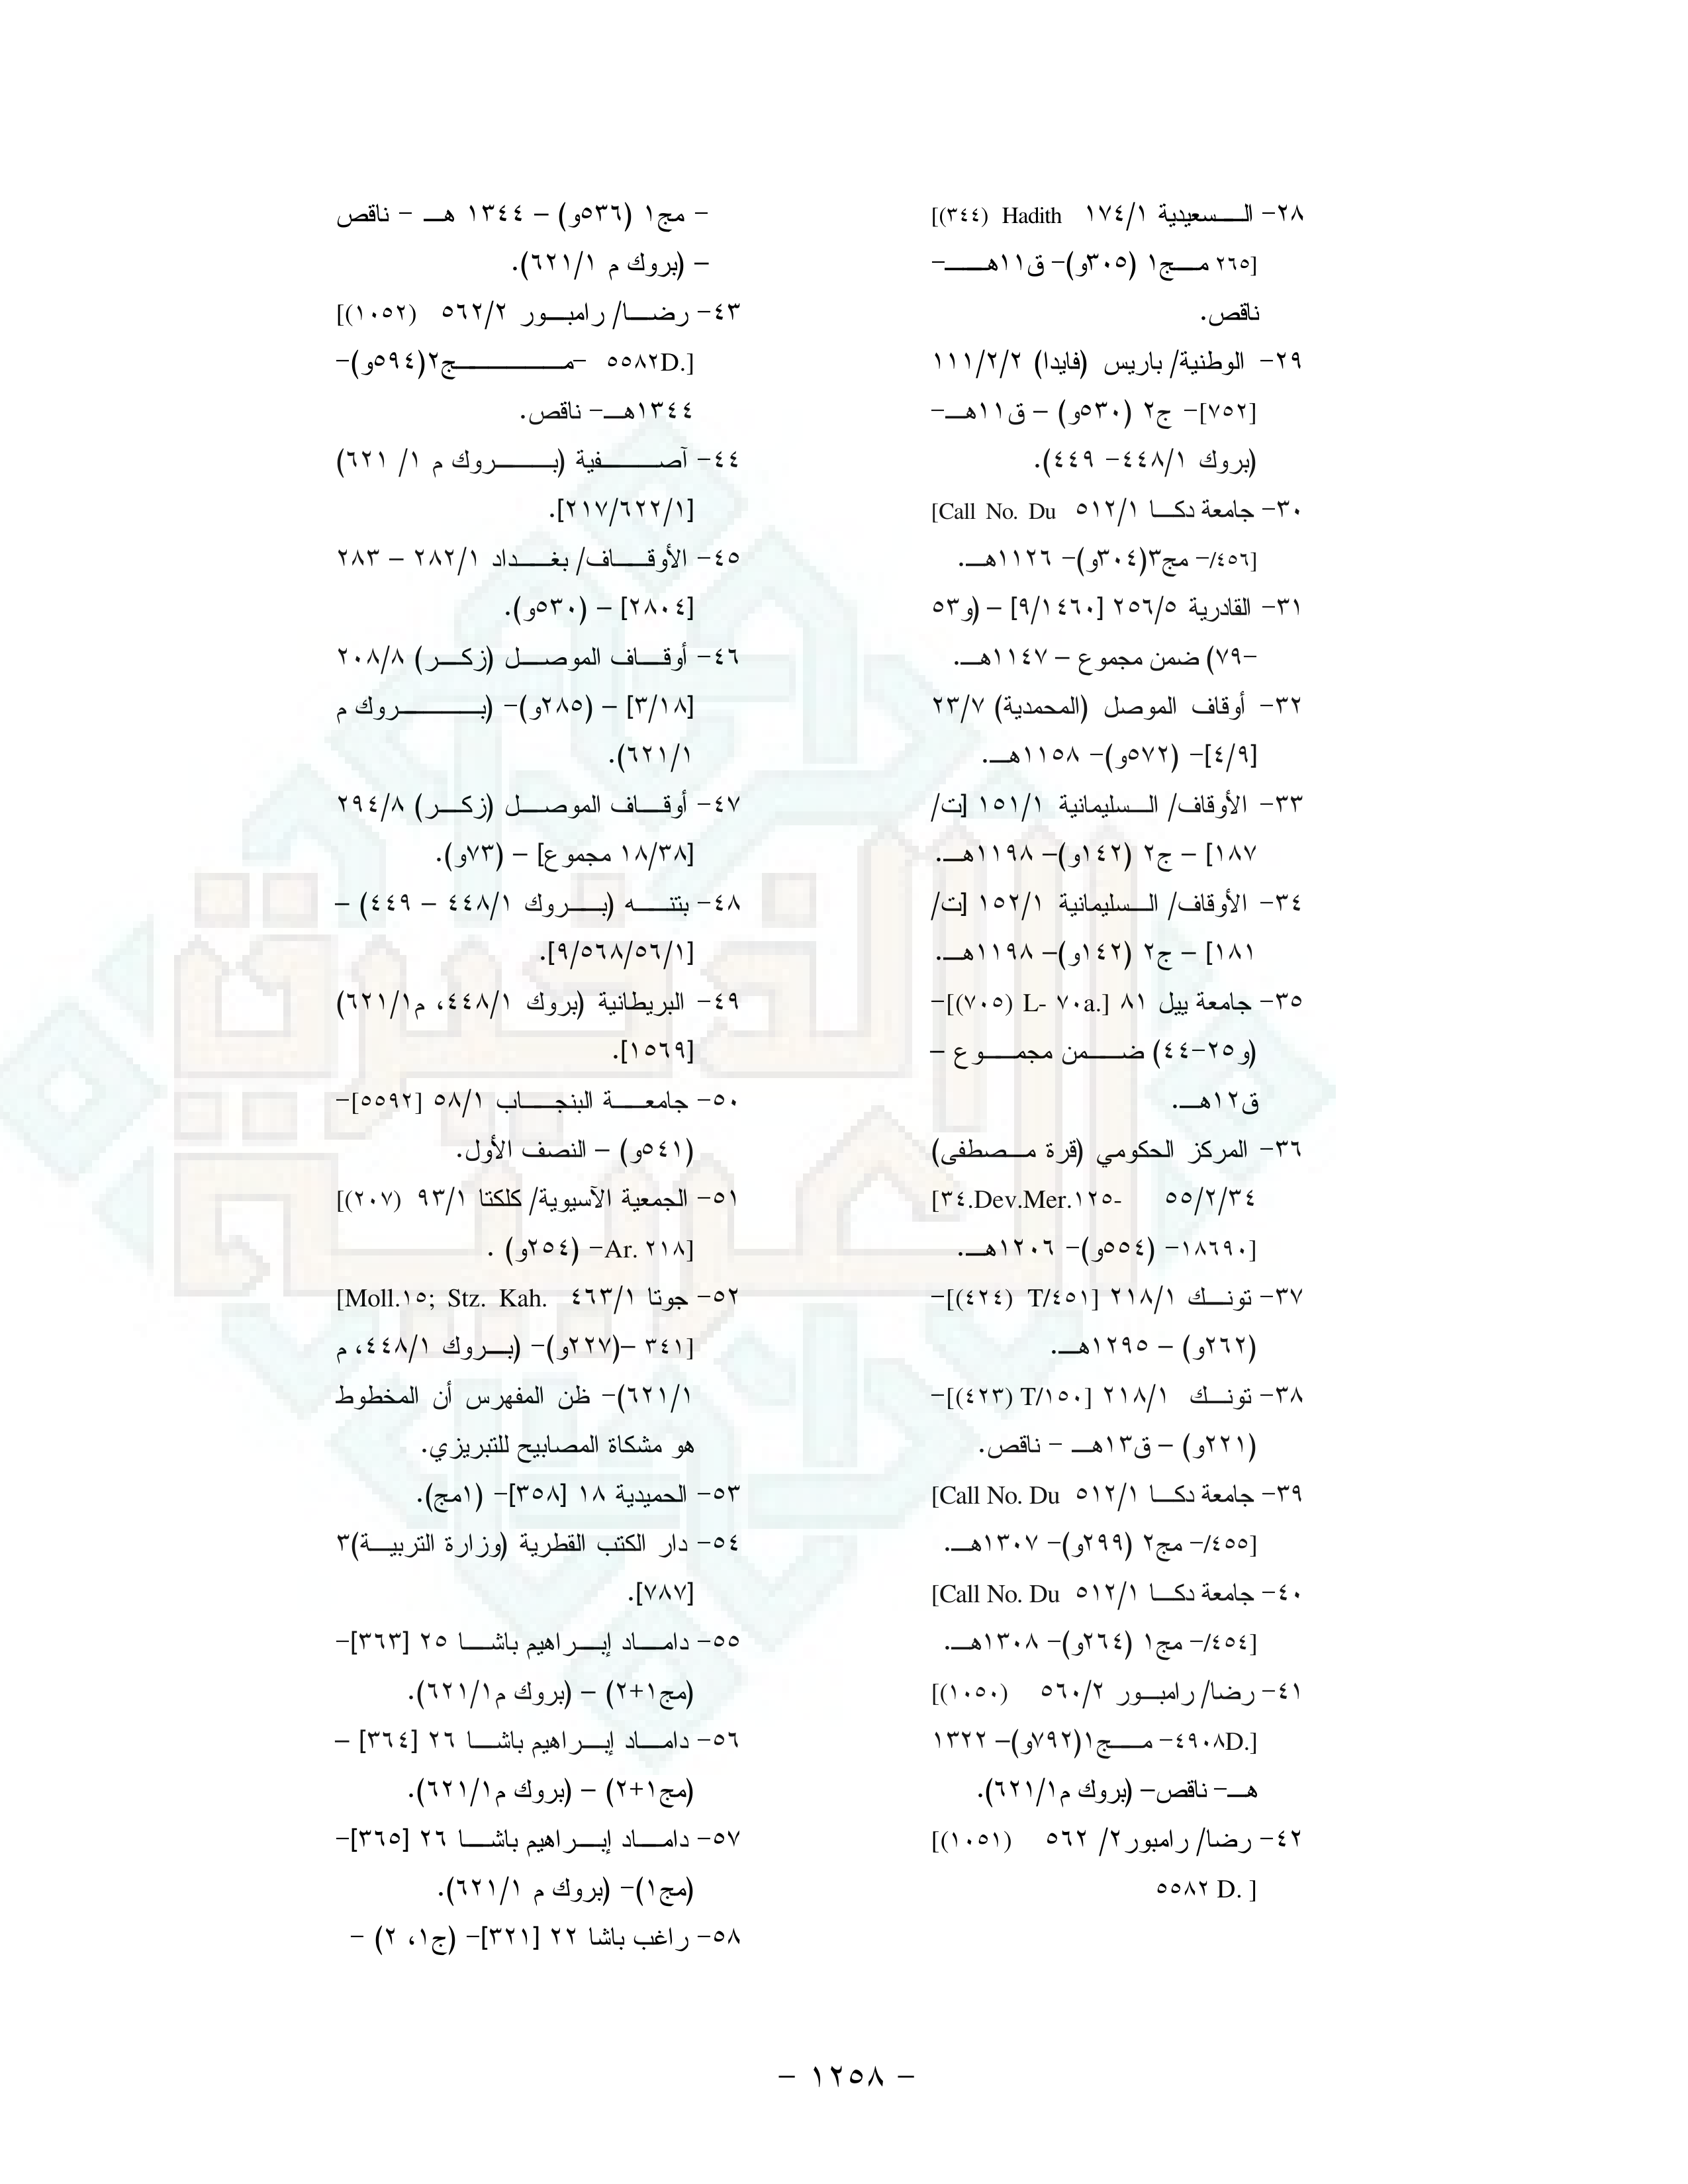 ٢٨- السعيدية ١٧٤/١ Hadith (٣٤٤)]
[٢٦٥ مج١ (٣٠٥و)- ق١١هـ-
ناقص.
٢٩- الوطنية/ باريس (فايدا) ١١١/٢/٢
[٧٥٢]- ج٢ (٥٣٠و) – ق١١هـ-
(بروك ٤٤٨/١- ٤٤٩).
٣٠- جامعة دكا ٥١٢/١ Call No. Du]
[٤٥٦/- مج٣(٣٠٤و)- ١١٢٦هـ.
٣١- القادرية ٢٥٦/٥ [٩/١٤٦٠] – (و٥٣
-٧٩) ضمن مجموع – ١١٤٧هـ.
٣٢- أوقاف الموصل (المحمدية) ٢٣/٧
[٤/٩]- (٥٧٢و)- ١١٥٨هـ.
٣٣- الأوقاف/ السليمانية ١٥١/١ [ت/
١٨٧] – ج٢ (١٤٢و)- ١١٩٨هـ.
٣٤- الأوقاف/ السليمانية ١٥٢/١ [ت/
١٨١] – ج٢ (١٤٢و)- ١١٩٨هـ.
٣٥- جامعة ييل ٨١ [.L- ٧٠a (٧٠٥)]-
(و٢٥-٤٤) ضمن مجموع –
ق١٢هـ.
٣٦- المركز الحكومي (قرة مصطفى)
٥٥/٢/٣٤ -٣٤.Dev.Mer.١٢٥]
[١٨٦٩٠- (٥٥٤و)- ١٢٠٦هـ.
٣٧- تونك ٢١٨/١ [T/٤٥١ (٤٢٤)]-
(٢٦٢و) – ١٢٩٥هـ.
٣٨- تونك ٢١٨/١ [T/١٥٠ (٤٢٣)]-
(٢٢١و) – ق١٣هـ – ناقص.
٣٩- جامعة دكا ٥١٢/١ Call No. Du]
[٤٥٥/- مج٢ (٢٩٩و)- ١٣٠٧هـ.
٤٠- جامعة دكا ٥١٢/١ Call No. Du]
[٤٥٤/- مج١ (٢٦٤و)- ١٣٠٨هـ.
٤١- رضا/ رامبور ٥٦٠/٢ (١٠٥٠)]
[.٤٩٠٨D- مج١(٧٩٢و)- ١٣٢٢
هـ- ناقص- (بروك م٦٢١/١).
٤٢- رضا/ رامبور٢/ ٥٦٢ (١٠٥١)]
[ .٥٥٨٢ D
- مج١ (٥٣٦و) – ١٣٤٤ هـ – ناقص
– (بروك م ٦٢١/١).
٤٣- رضا/ رامبور ٥٦٢/٢ (١٠٥٢)]
[.٥٥٨٢D -مج٢(٥٩٤و)-
١٣٤٤هـ- ناقص.
٤٤- آصفية (بروك م ١/ ٦٢١)
[٢١٧/٦٢٢/١].
٤٥- الأوقاف/ بغداد ٢٨٢/١ – ٢٨٣
[٢٨٠٤] – (٥٣٠و).
٤٦- أوقاف الموصل (زكر) ٢٠٨/٨
[٣/١٨] – (٢٨٥و)- (بروك م
٦٢١/١).
٤٧- أوقاف الموصل (زكر) ٢٩٤/٨
[١٨/٣٨ مجموع] – (٧٣و).
٤٨- بتته (بروك ٤٤٨/١ – ٤٤٩) –
[٩/٥٦٨/٥٦/١].
٤٩- البريطانية (بروك ٤٤٨/١، م٦٢١/١)
[١٥٦٩].
٥٠- جامعة البنجاب ٥٨/١ [٥٥٩٢]-
(٥٤١و) – النصف الأول.
٥١- الجمعية الآسيوية/ كلكتا ٩٣/١ (٢٠٧)]
[Ar. ٢١٨- (٢٥٤و) .
٥٢- جوتا ٤٦٣/١ Moll.١٥; Stz. Kah.]
[٣٤١ –(٢٢٧و)- (بروك ٤٤٨/١، م
٦٢١/١)- ظن المفهرس أن المخطوط
هو مشكاة المصابيح للتبريزي.
٥٣- الحميدية ١٨ [٣٥٨]- (١مج).
٥٤- دار الكتب القطرية (وزارة التربية)٣
[٧٨٧].
٥٥- داماد إبراهيم باشا ٢٥ [٣٦٣]-
(مج١+٢) – (بروك م٦٢١/١).
٥٦- داماد إبراهيم باشا ٢٦ [٣٦٤] –
(مج١+٢) – (بروك م٦٢١/١).
٥٧- داماد إبراهيم باشا ٢٦ [٣٦٥]-
(مج١)- (بروك م ٦٢١/١).
٥٨- راغب باشا ٢٢ [٣٢١]- (ج١، ٢) -
- ١٢٥٨ -